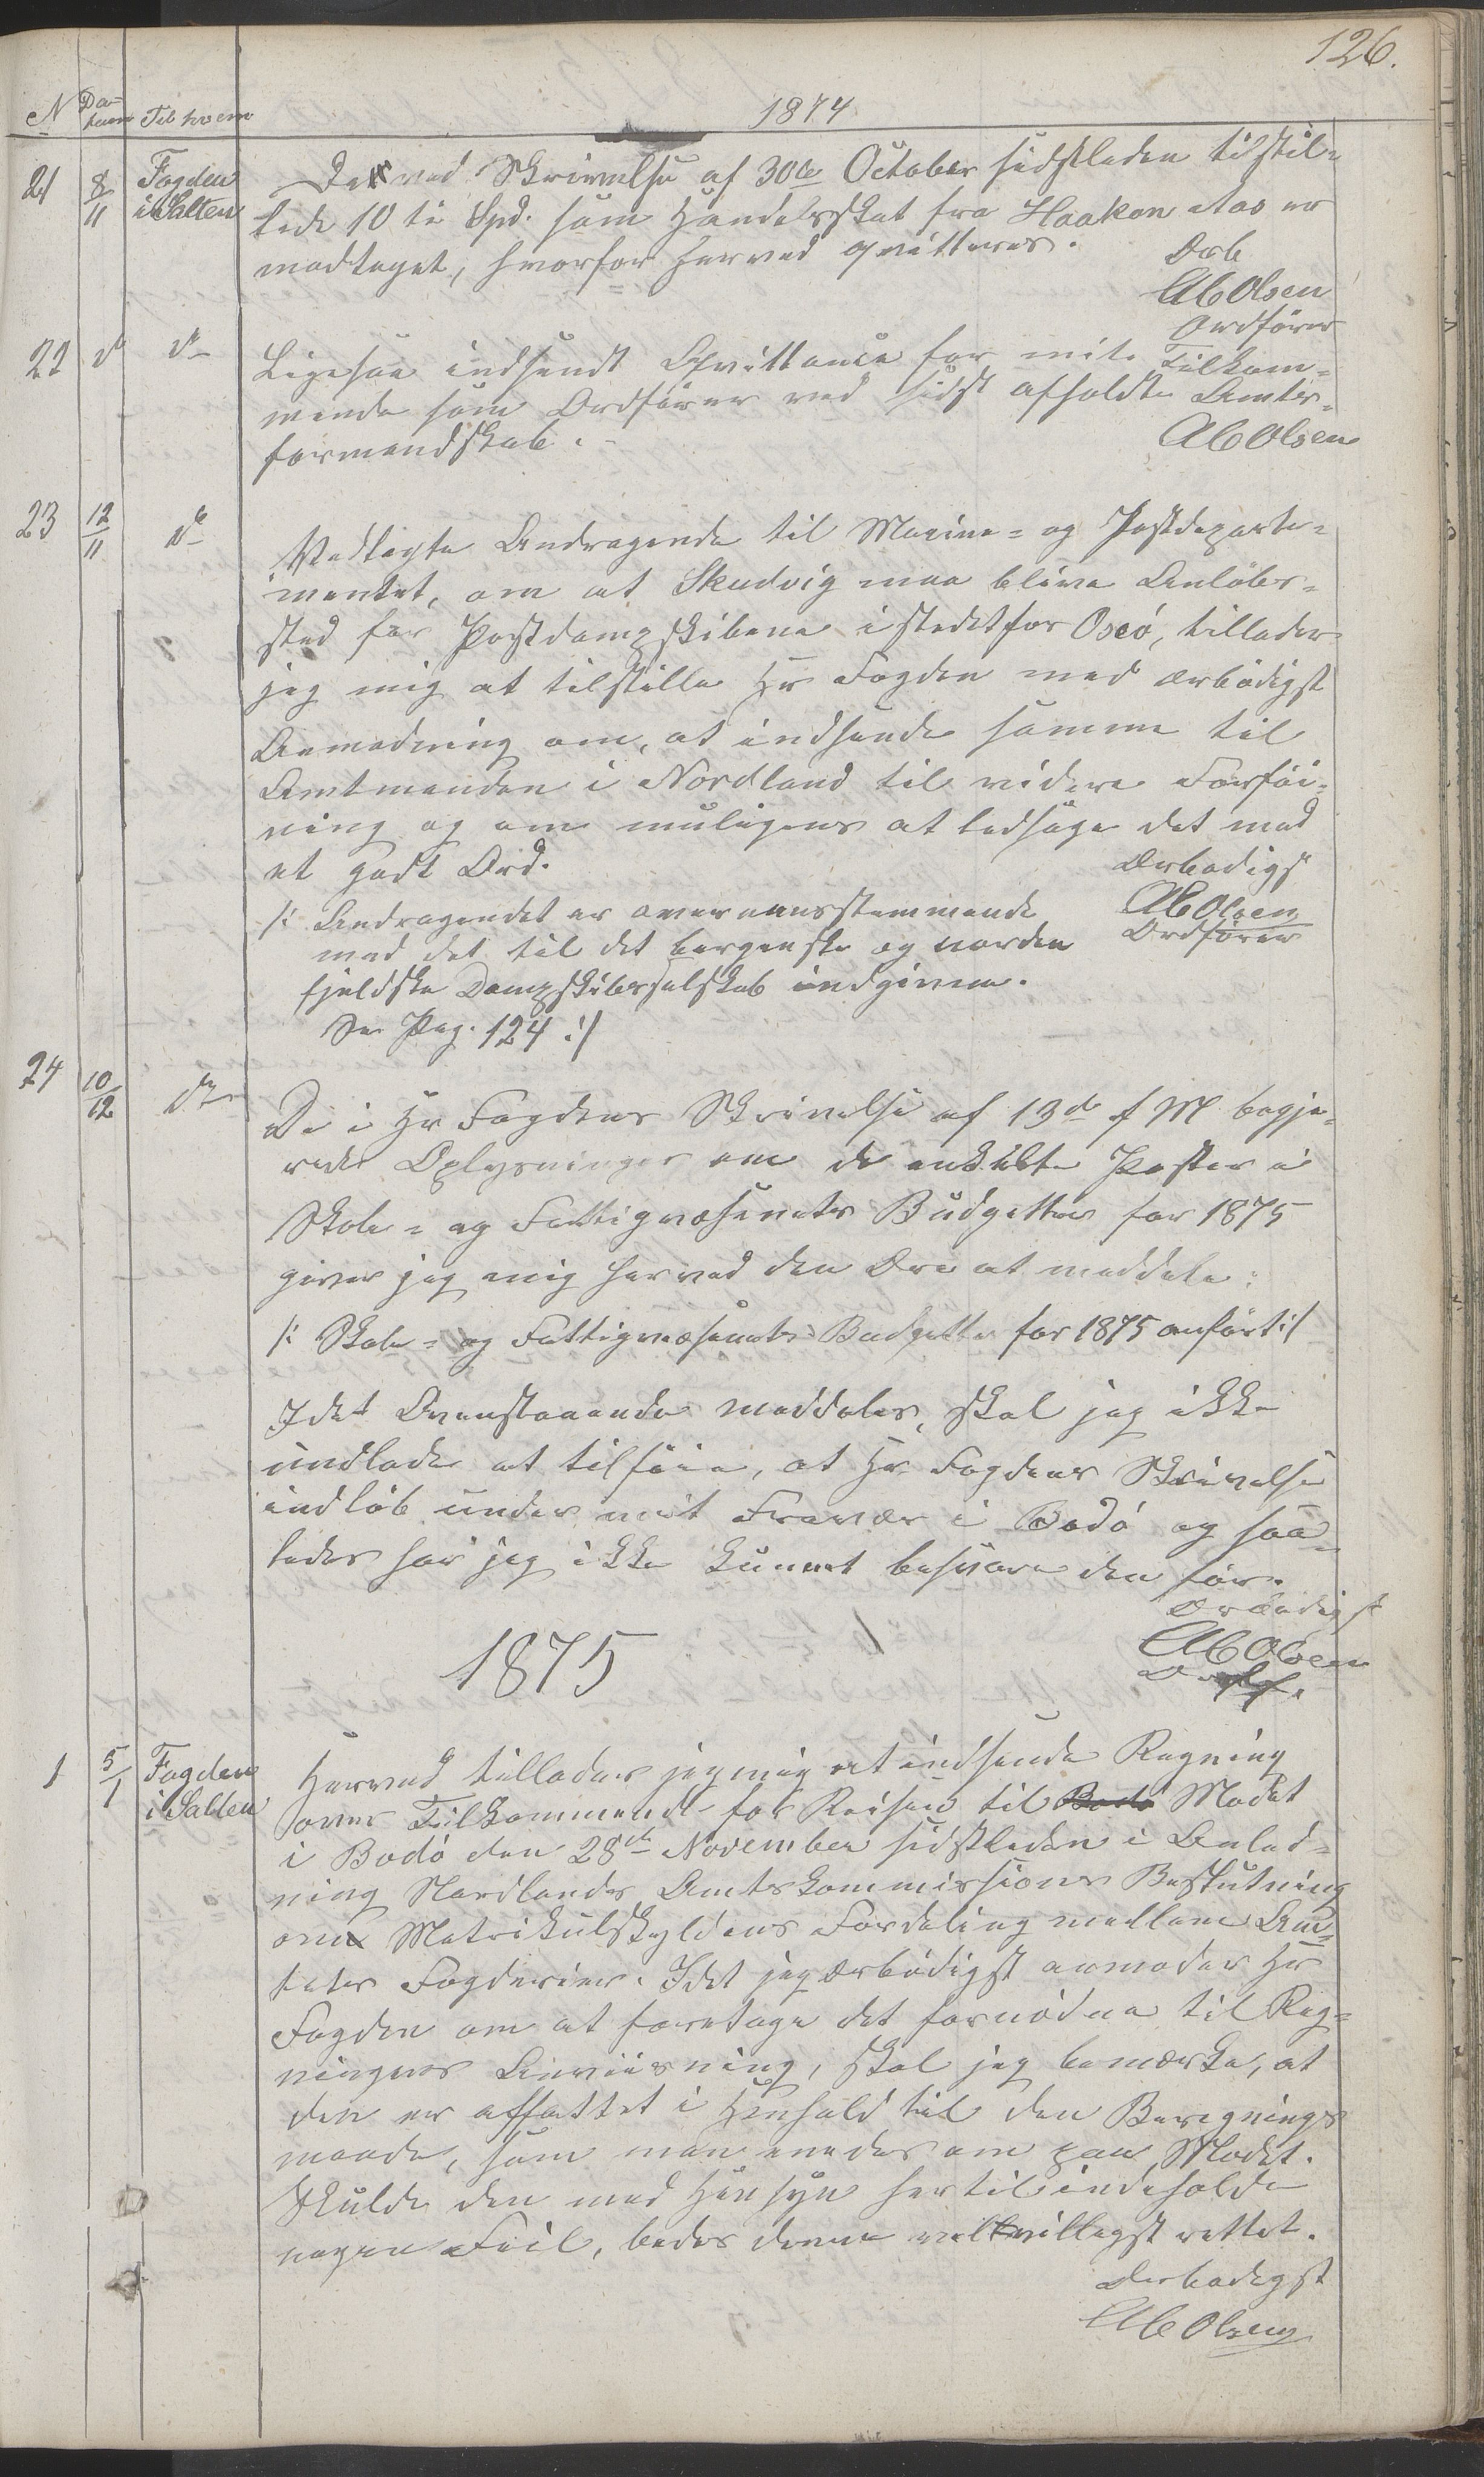 126.
N Da- Til hvem 1874
tum
21 8/11 Fogden i Salten De ved Skrivelse af 30te October sidstleden tilstil-
lede 10 ti Spd. som Handelsskat fra Haakon Aas er
modtaget, hvorfor herved qvitteres. Ærb
AbOlsen
Ordfører
22 do do Ligesaa indsendt Qvittance for mit Tilkom-
mende som Ordfører ved sidst afholdte Amts-
formandskab. AbOlsen
23 12/11 do Vedlagte Andragende til Marine- og Postdeparte-
mentet, om at Skudvig maa blive Anløbs-
sted for Postdampskibene istedetfor Oscø, tillader
jeg mig at tilstille Hr Fogden med ærbødigst
Anmodning om, at indsende samme til
Amtmanden i Nordland til videre Forføi-
ning og om muligens at ledsage det med
et godt Ord. Ærbødigst
/: Andragendet er overeensstemmende AbOlsen
med det til det bergenske og norden Ordfører
fjeldske Dampskibsselskab indgivne.
Se Pag. 124 :/
24 10/12 do De i Hr Fogdens Skrivelse af 13de f M begjæ-
rede Oplysninger om de enkelte Poster i
Skole- og Fattigvæsenets Budgetter for 1875
giver jeg mig herved den Ære at meddele:
/: Skole- og Fattigvæsenets Budgetter for 1875 anført :/
Idet Ovenstaaende meddeles, skal jeg ikke
undlade at tilføie, at Hr Fogdens Skrivelse
indløb under mit Fravær i Bodø og saa-
ledes har jeg ikke kunnet besvare den før.
Ærbødigst
AbOlsen
1875 Ordf.
1 5/1 Fogden i Salten Herved tillader jeg mig at indsende Regning
over Tilkommende for Reisen til Bodø Mødet
i Bodø den 28de November sidstleden i Anled-
ning Nordlands Amtskommissions Beslutning
om Matrikulskyldens Fordeling mellem Am-
tets Fogderier. Idet jeg ærbødigst anmoder Hr
Fogden om at foretage det fornødne til Reg-
ningens Anviisning, skal jeg bemærke, at
den er affattet i Henhold til den Beregnings
maade, som man enedes om paa Mødet.
Skulde den med Hensyn hertil indeholde
nogen Feil, bedes denne velvilligst rettet.
Ærbødigst
AbOlsen